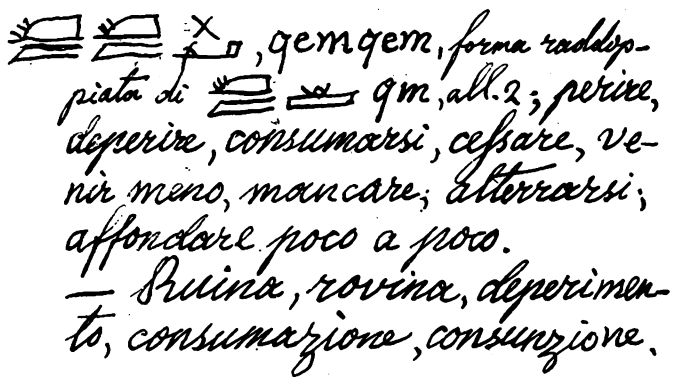 , qemqem, forma raddop-
piata di qm, all. 2; perire,
deperire, consumarsi, cessare, ve-
nir meno, mancare; atterrarsi;
affondare poco a poco.
— Ruina, rovina, deperimen-
to, consumazione, consunzione.